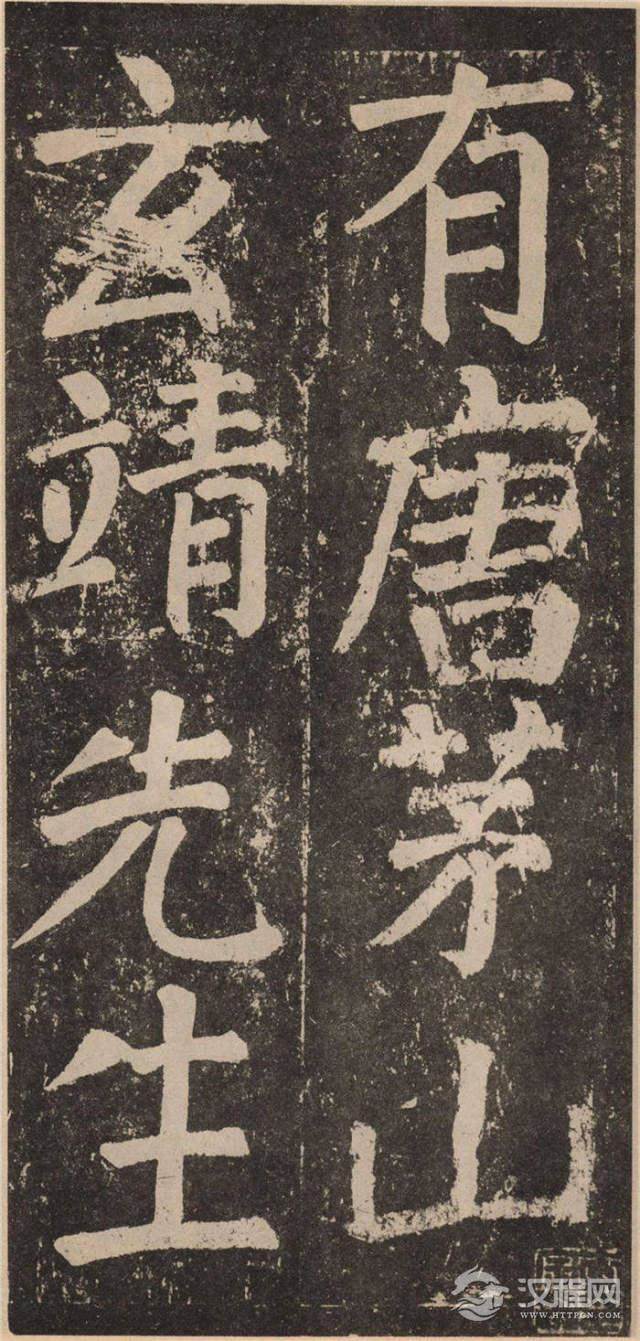 有唐茅山
玄靖先生
汉程网
WWW.HTTPCN.COM